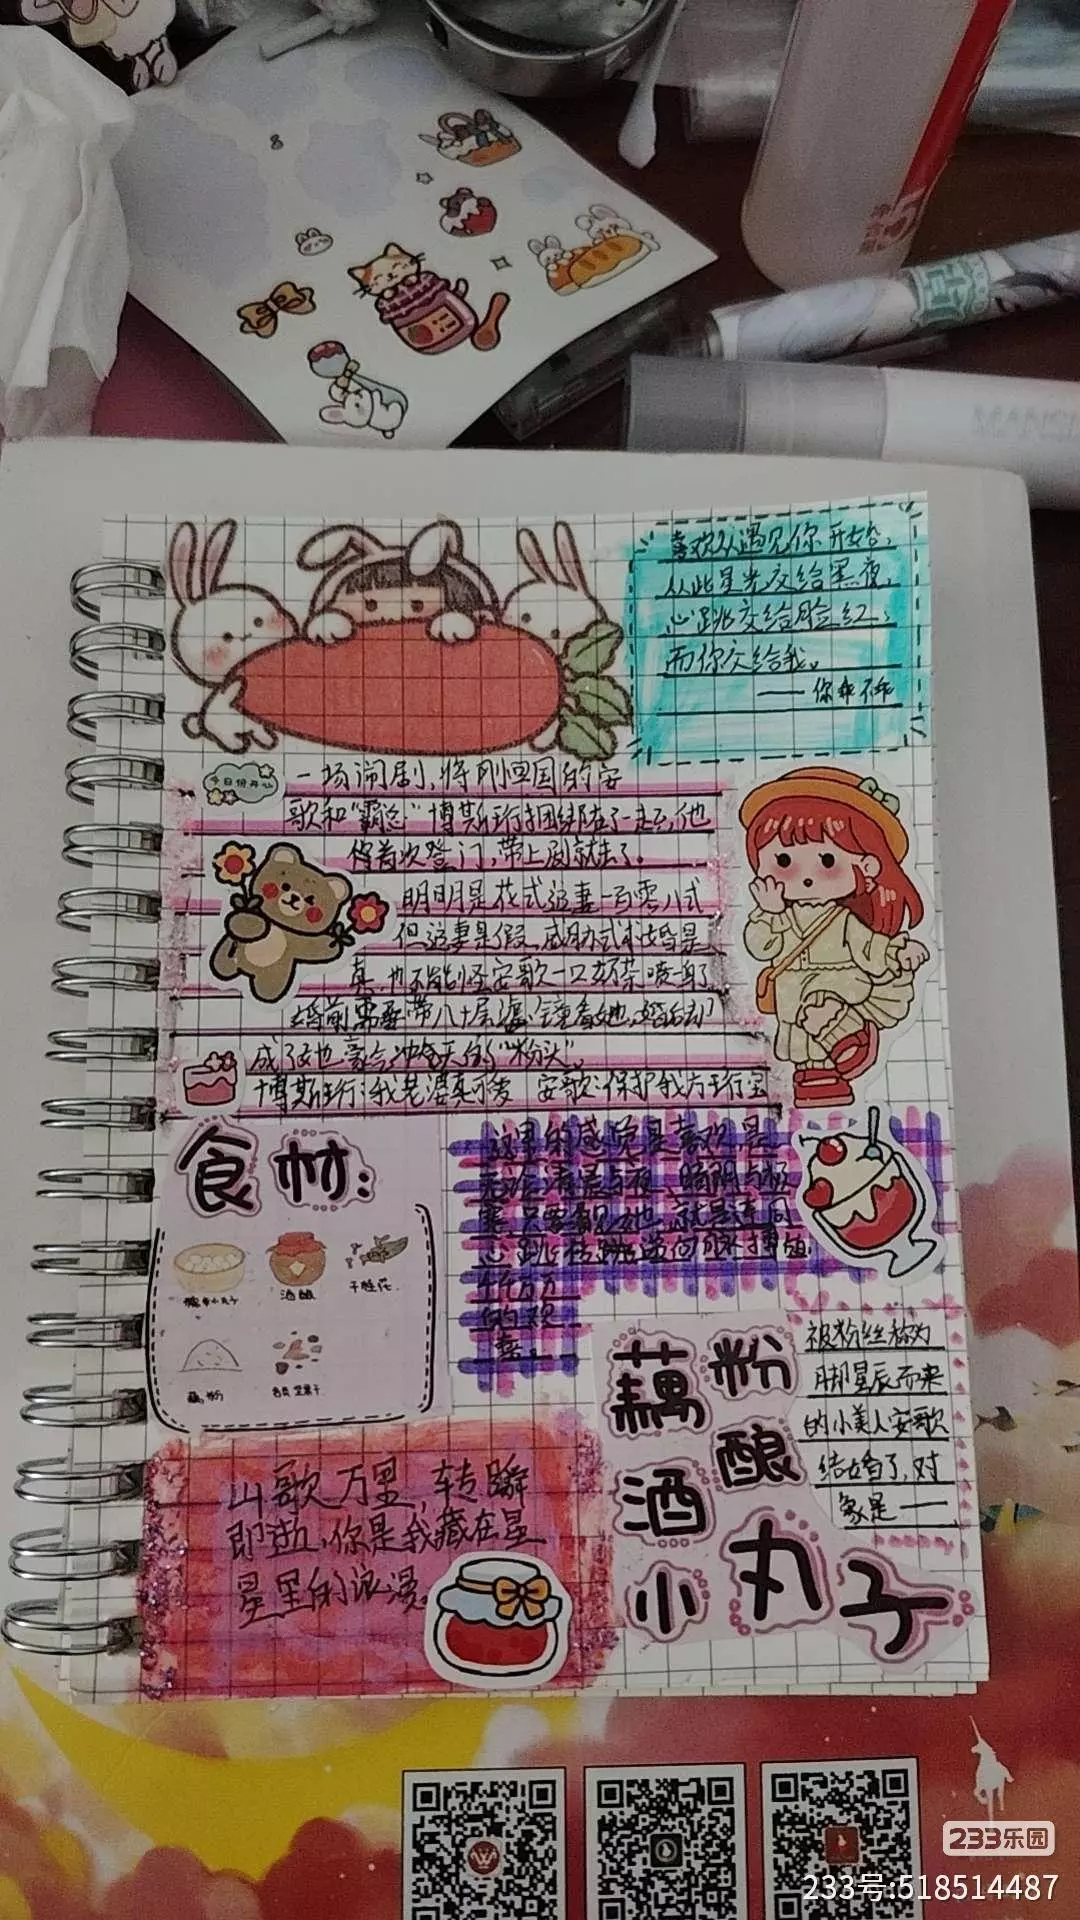 8
喜欢从遇见你开始，
从此星光交给黑夜，
心跳交给脸红，
而你交给我。
——你乖不乖
今日份开心
一场闹剧，将刚回国的安
歌和“霸总”博斯珩捆绑在了一起，他
俩首次登门，带上剧就去了。
明明是花式追妻一百零八式
但追妻是假，威胁式求婚是
真，也不能怪安歌一口奶茶喷身了
婚前需要带八十层滤镜看她，婚后却
成了她豪气冲天的“粉头”，
博斯珩：我老婆真可爱 安歌：保护我方珩宝
食材：
糯米小丸子
酒酿
干桂花
藕粉
各类坚果干
这里的感觉是喜欢，是
无论清晨与夜 晴阴与极
寒 只要看见她 就是连同
心跳
的欢
喜。
藕粉
酒酿
小丸子
被粉丝称为
脚星辰而来
的小美人安歌
结婚了，对
象是——
山歌万里，转瞬
即逝，你是我藏在星
星里的浪漫。
233乐园
233号:518514487